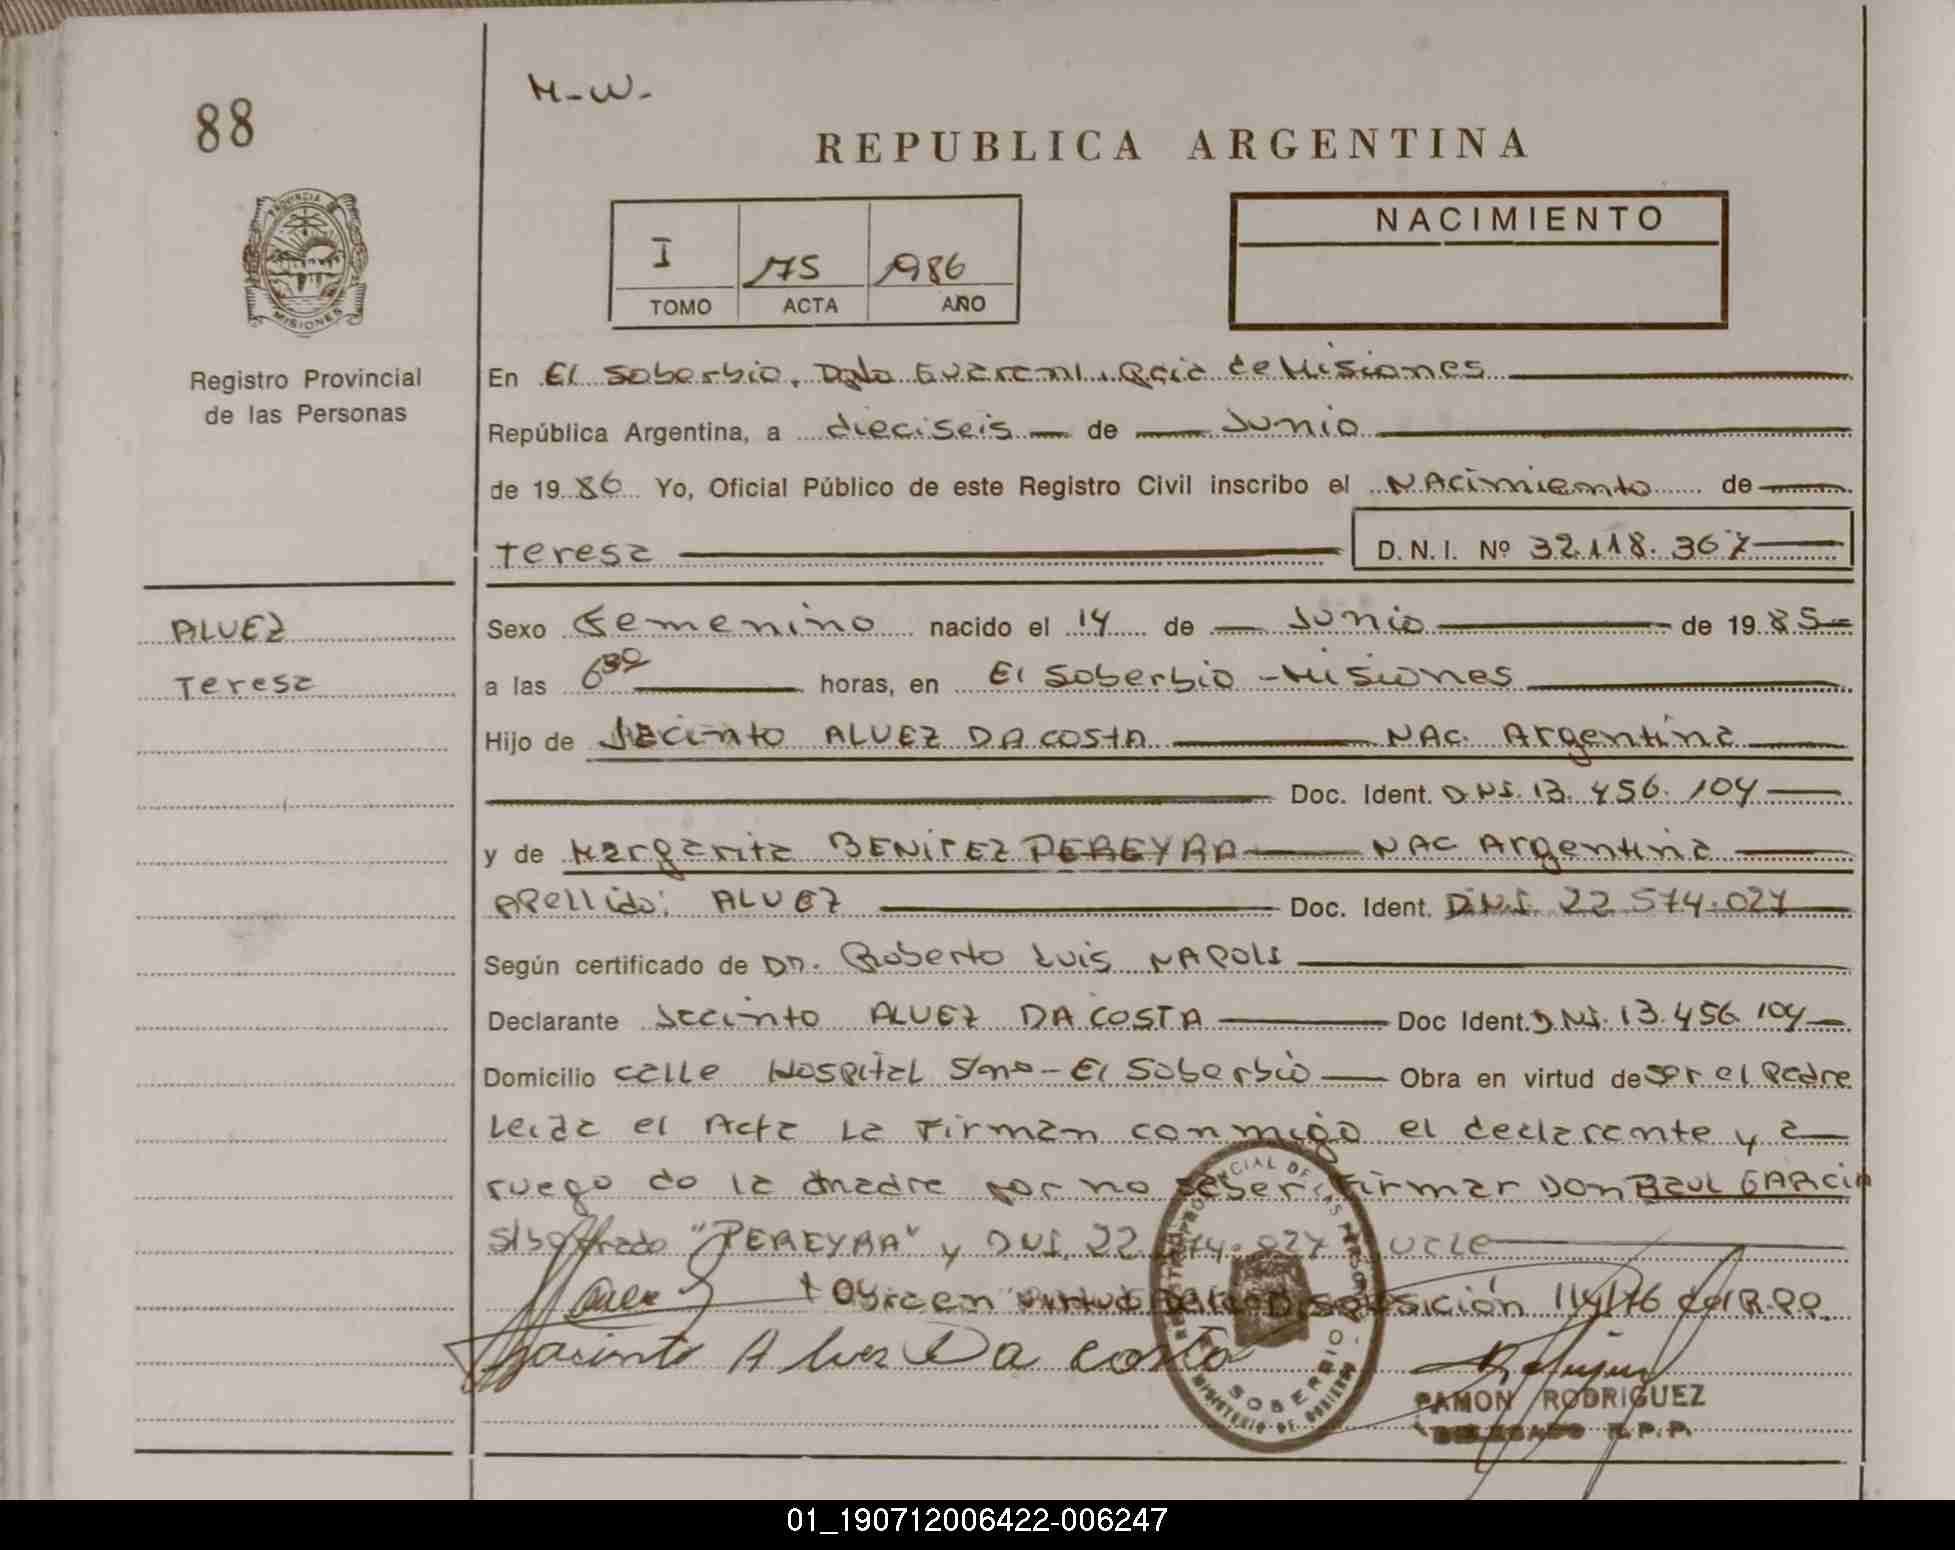 88
M-W-
REPUBLICA ARGENTINA
PROVINCIA DE
MISIONES
Registro Provincial
de las Personas
I 175 1986
TOMO ACTA AÑO
NACIMIENTO
En El Soberbio, Dpto Guarani, Pcia de Misiones
República Argentina, a dieciseis de Junio
de 1986 Yo, Oficial Público de este Registro Civil inscribo el NAcimiento de
Teresa D.N.I. Nº 32.118.367
ALVEZ
Teresa
Sexo Femenino nacido el 14 de Junio de 1985
a las 6 30 horas, en El Soberbio - Misiones
Hijo de Jacinto ALVEZ DA COSTA NAC. Argentina
Doc. Ident. DNI. 13.456.104
y de Margarita BENITEZ PEREYRA NAC Argentina
Apellido: ALVEZ Doc. Ident. DNI. 22 574.027
Según certificado de Dr. Roberto Luis NAPOLI
Declarante Jacinto ALVEZ DA COSTA Doc Ident. DNI. 13.456.104
Domicilio calle Hospital S/nº - El Soberbio Obra en virtud de ser el Padre
Leida el Acta La Firman conmigo el declarante y a
ruego de la madre por no saber firmar Don RAUL GARCIA
S/borrado "PEREYRA" y DNI. 22 574.027 vale
Obra en virtud Disposición 114/76 del R.P.P.
Jacinto Alvez Da Costa
SOBERBIO
MINISTERIO DE GOBIERNO
RAMON RODRIGUEZ
DELEGADO R.P.P.
01_190712006422-006247